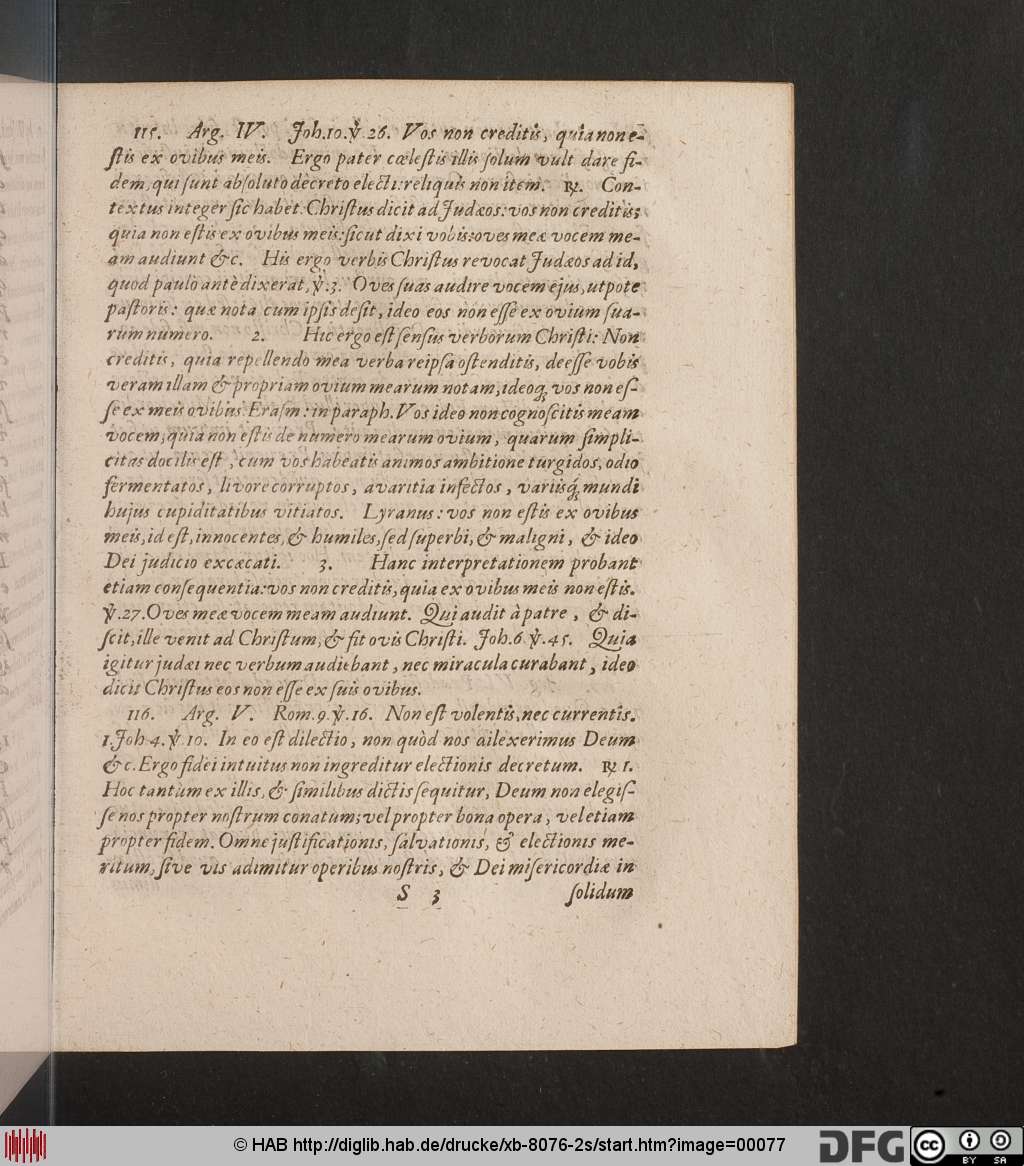 115. Arg. IV. Joh.10.℣ 26. Vos non creditis, quia non e-
ſtis ex ovibus meis. Ergo pater cœleſtis illis ſolum vult dare fi-
dem, qui ſunt abſoluto decreto electi: reliquis non item. ℞. Con-
textus integer ſic habet: Chriſtus dicit ad Judæos: vos non creditis;
quia non eſtis ex ovibus meis: ſicut dixi vobis: oves meæ vocem me-
am audiunt &c. His ergo verbis Chriſtus revocat Judæos ad id,
quod paulo antè dixerat, ℣.3. Oves ſuas audire vocem ejus, utpote
paſtoris: quæ nota cum ipſis deſit, ideo eos non eſſe ex ovium ſua-
rum numero. 2. Hic ergo est ſenſus verborum Chriſti: Non
creditis, quia repellendo mea verba reipſa oſtenditis, deeſſe vobis
veram illam & propriam ovium mearum notam, ideoq́; vos non eſ-
ſe ex meis ovibus. Eraſm: in paraph. Vos ideo non cognoſcitis meam
vocem, quia non eſtis de numero mearum ovium, quarum ſimpli-
citas docilis eſt, cum vos habeatis animos ambitione turgidos, odio
fermentatos, livore corruptos, avaritia infectos, variisq́; mundi
hujus cupiditatibus vitiatos. Lyranus: vos non eſtis ex ovibus
meis, id eſt, innocentes, & humiles, ſed ſuperbi, & maligni, & ideo
Dei judicio excæcati. 3. Hanc interpretationem probant
etiam conſequentia: vos non creditis, quia ex ovibus meis non eſtis.
℣.27. Oves meæ vocem meam audiunt. Qui audit à patre, & di-
ſcit, ille venit ad Chriſtum, & fit ovis Chriſti. Joh.6.℣.45. Quia
igitur judæi nec verbum audiebant, nec miracula curabant, ideo
dicit Chriſtus eos non eſſe ex ſuis ovibus.
116. Arg. V. Rom.9.℣.16. Non eſt volentis, nec currentis.
1.Joh 4.℣.10. In eo eſt dilectio, non quòd nos dilexerimus Deum
&c. Ergo fidei intuitus non ingreditur electionis decretum. ℞ 1.
Hoc tantùm ex illis, & ſimilibus dictis ſequitur, Deum non elegiſ-
ſe nos propter noſtrum conatum; vel propter bona opera, vel etiam
propter fidem. Omne juſtificationis, ſalvationis, & electionis me-
ritum, ſive vis adimitur operibus noſtris, & Dei miſericordiæ in
S 3 ſolidum
© HAB http://diglib.hab.de/drucke/xb-8076-2s/start.htm?image=00077
DFG
cc BY SA